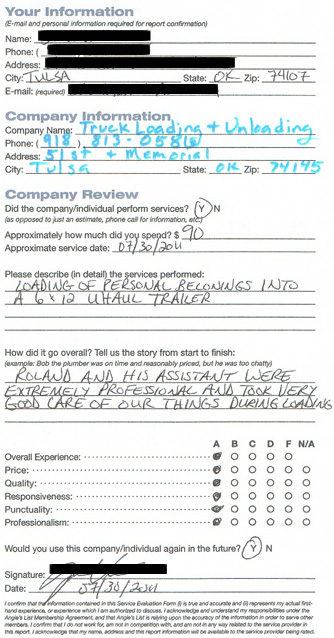 Your Information
(E-mail and personal information required for report confirmation)
Name:
Phone: (
Address:
City: TULSA State: OK Zip: 74107
E-mail: (required)
Company Information
Company Name: Truck Loading + Unloading
Phone: (918) 813-0586
Address: 51st + Memorial
City: Tulsa State: OK Zip: 74145
Company Review
Did the company/individual perform services? Y N
(as opposed to just an estimate, phone call for information, etc)
Approximately how much did you spend? $ 90
Approximate service date: 07/30/2011
Please describe (in detail) the services performed:
LOADING OF PERSONAL BELONINGS INTO
A 6x12 UHAUL TRAILER
How did it go overall? Tell us the story from start to finish:
(example: Bob the plumber was on time and reasonably priced, but he was too chatty)
ROLAND AND HIS ASSISTANT WERE
EXTREMELY PROFESSIONAL AND TOOK VERY
GOOD CARE OF OUR THINGS DURING LOADING
A B C D F N/A
Overall Experience:
Price:
Quality:
Responsiveness:
Punctuality:
Professionalism:
Would you use this company/individual again in the future? Y N
Signature:
Date: 07/30/2011
I confirm that the information contained in this Service Evaluation Form (i) is true and accurate and (ii) represents my actual first-
hand experience, or experience which I am authorized to discuss. I acknowledge and understand my responsibilities under the
Angie's List Membership Agreement, and that Angie's List is relying upon the accuracy of the information in order to serve other
members. I confirm that I do not work for, am not in competition with, and am not in any way related to the service provider in
this report. I acknowledge that my name, address and this report information will be available to the service provider being rated.